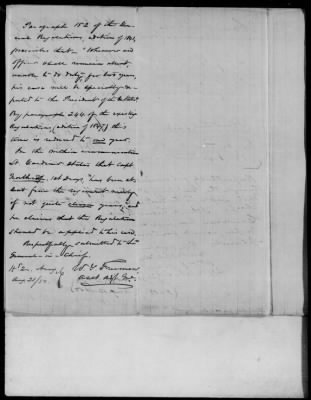 Paragraph 152 of the Gen-
eral Regulations, edition of 1841,
prescribes that "Whenever an
officer shall remain about
unable to do duty, for two years,
his case will be specially re-
ported to the President of the
By paragraph 244 of the
Regulations, (edition of 1847) this
time is reduced to one year.
In the within communication
Lt Gardiner states that Capt.
1st Drags. "has been ab-
sent from the regiment
if not quite eleven years", and
he claims that the Regulation
should be applied to his case.
Respectfully submitted to the
General-in-Chief.
W. G. Freeman
Asst Adjt. Genl.
Hd. Qrs. Army
Aug 21/50